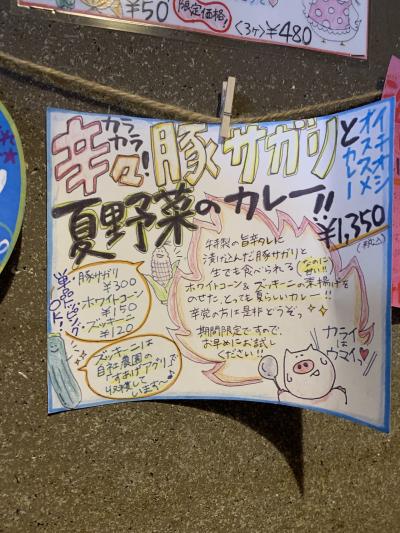 ¥50
限定価格!
〈3ヶ〉¥480
イチオシ
オススメ
カレー
カラ
カラ
辛々!豚サガリと
夏野菜のカレー!!
¥1,350
(税込)
特製の旨辛タレに
漬け込んだ豚サガリと
生でも食べられる
なのに
甘い!!
ホワイトコーン&ズッキーニの素揚げを
のせた、とっても夏らしいカレー!!
辛党の方は是非どうぞっ
期間限定ですので、
お早めにお試し
ください!!
単品トッピングもOK!
・豚サガリ
¥300
・ホワイトコーン
¥150
・ズッキーニ
¥120
ズッキーニは
自社農園の
「すあげアグリ」で
収穫して
います〜♪
カライ
は
ウマイっ